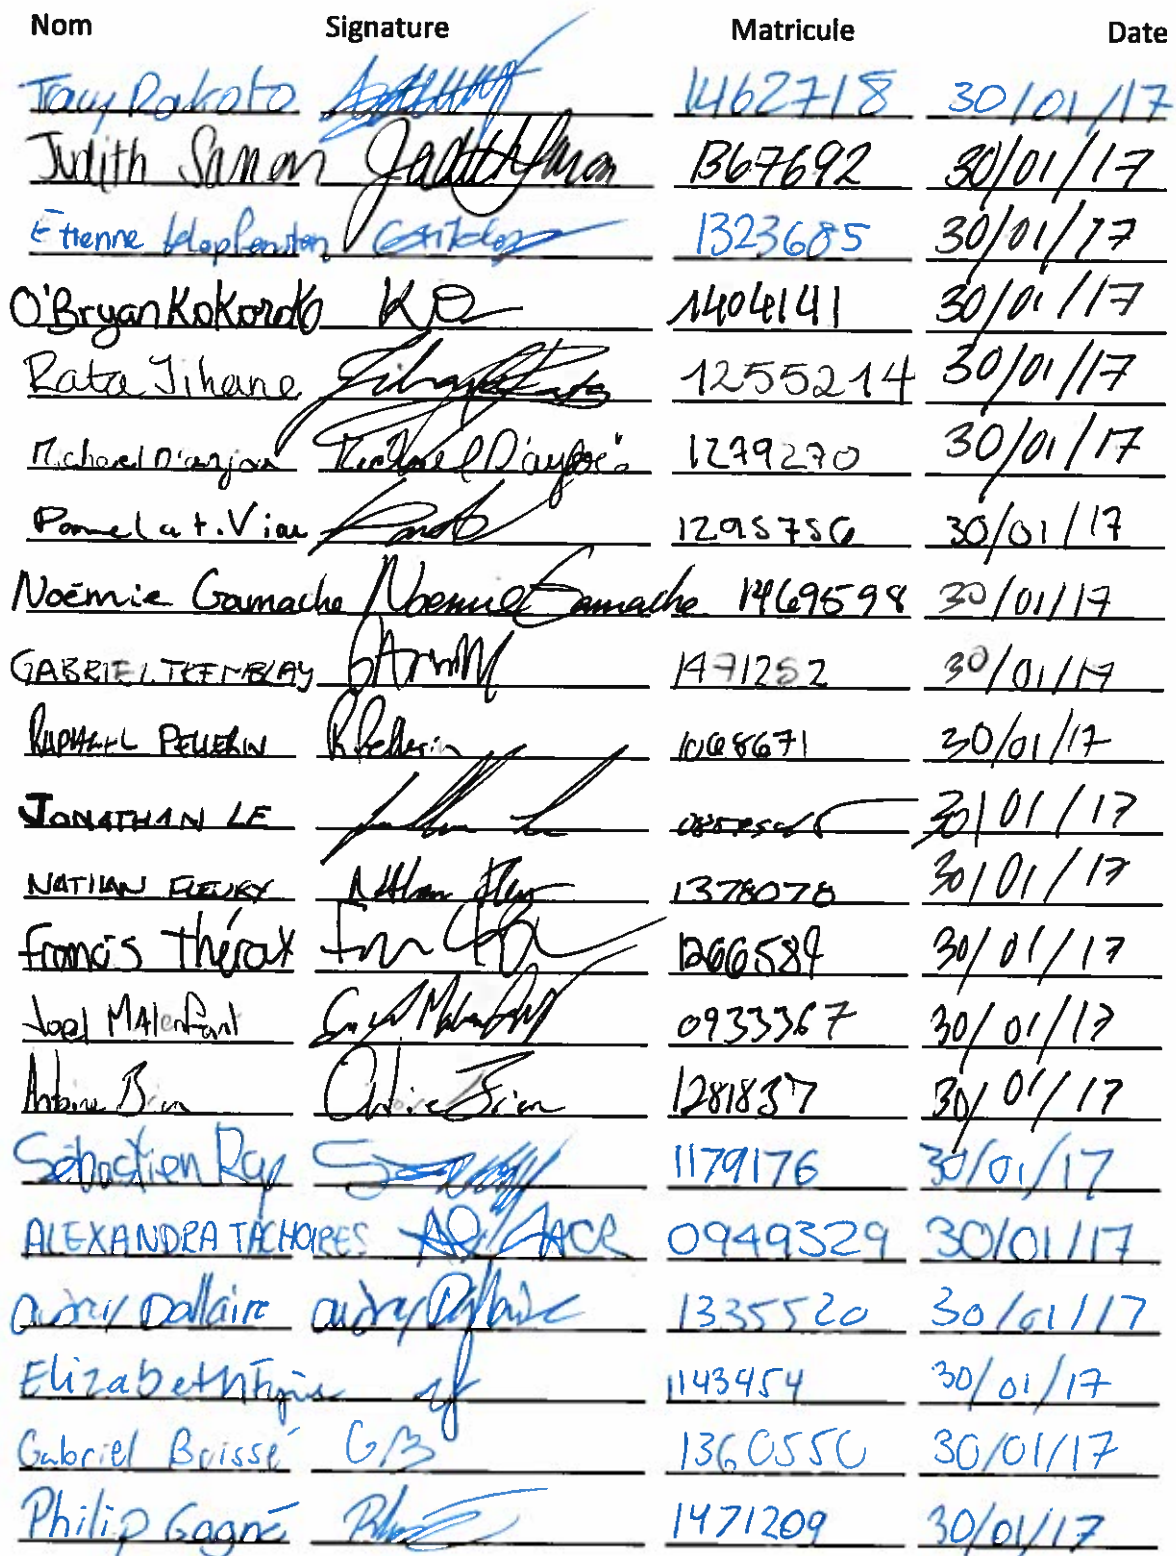 Nom Signature Matricule Date
Tony Rakoto 1462718 30/01/17
Judith Sanon Judith Sanon 1367692 30/01/17
Étienne 1323685 30/01/17
O'Bryan Kokoroko KO 1404141 30/01/17
Rata Jihane Jihane Rata 1255214 30/01/17
Michael D'anjou Michael D'anjou 1279270 30/01/17
Pamela t. Viau 1295756 30/01/17
Noémie Gamache Noémie Gamache 1469598 30/01/17
GABRIEL TREMBLAY 1471252 30/01/17
RAPHAEL PELLERIN R. Pellerin 1068671 30/01/17
JONATHAN LE 30/01/17
NATHAN FLEURY Nathan Fleury 1378078 30/01/17
Francis Théroux 1266584 30/01/17
Joel Malenfant 0933367 30/01/17
Antoine Brien Antoine Brien 1281837 30/01/17
Sébastien Roy 1179176 30/01/17
ALEXANDRA TACHOIRES 0949329 30/01/17
audrey Dallaire audrey Dallaire 1335520 30/01/17
Elizabeth 1143454 30/01/17
Gabriel Boissé GB 1360550 30/01/17
Philip Gagné 1471209 30/01/17